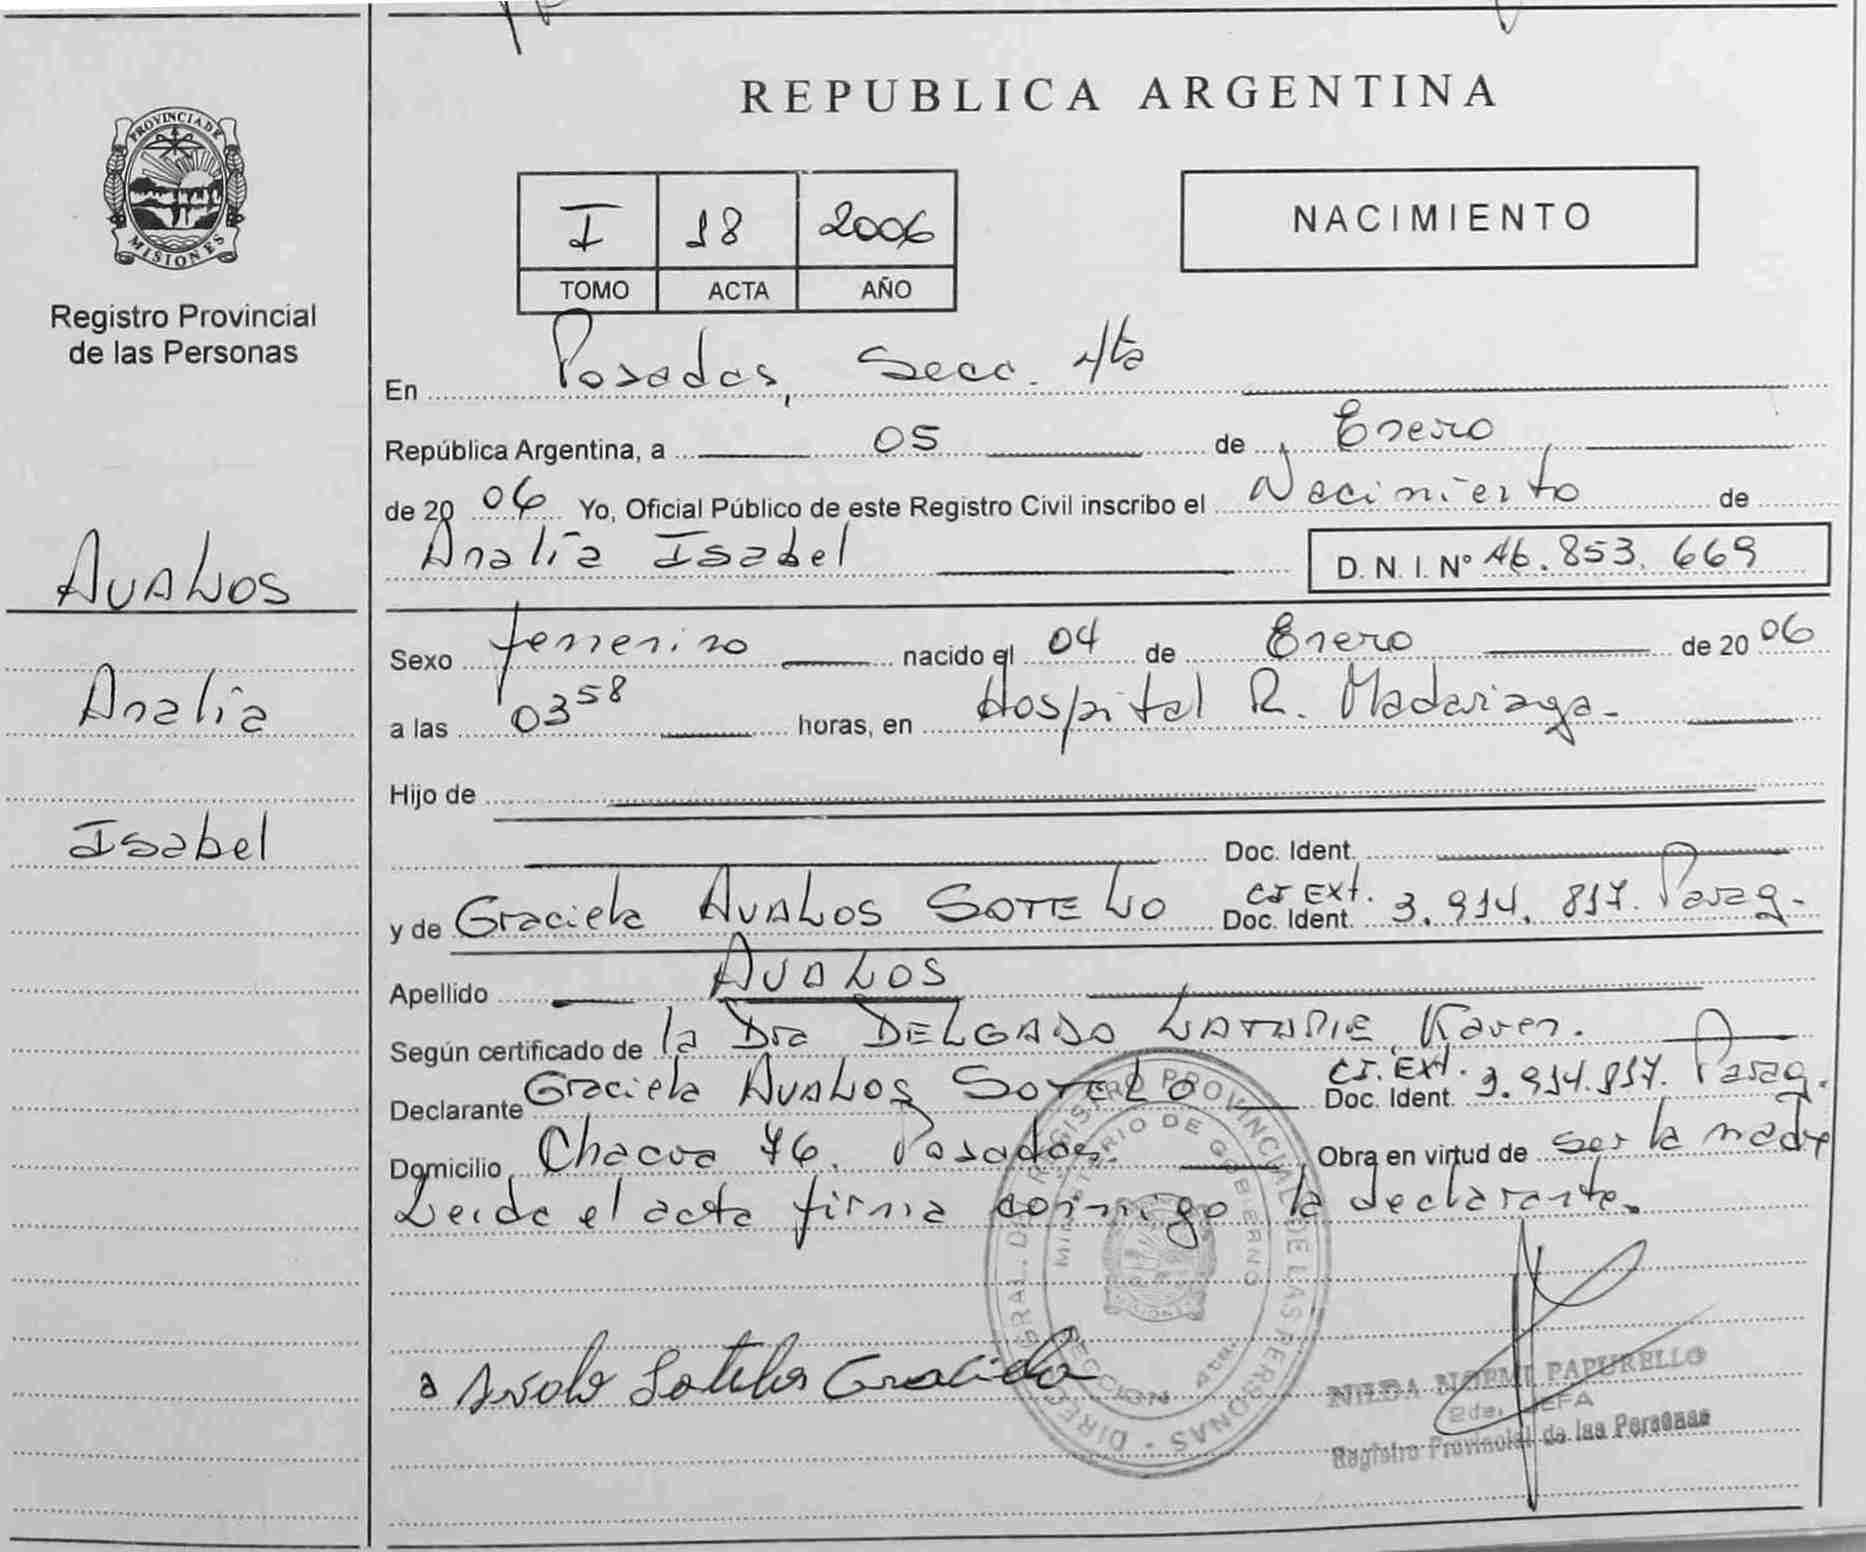 PROVINCIA DE
MISIONES
Registro Provincial
de las Personas
AVALOS
Analía
Isabel
REPUBLICA ARGENTINA
I 18 2006
TOMO ACTA AÑO
NACIMIENTO
En Posadas, Secc. 4ta
República Argentina, a 05 de Enero
de 20 06 Yo, Oficial Público de este Registro Civil inscribo el Nacimiento de
Analía Isabel D.N.I. Nº 46.853.669
Sexo femenino nacido el 04 de Enero de 20 06
a las 03 58 horas, en Hospital R. Madariaga.
Hijo de
Doc. Ident.
y de Graciela AVALOS SOTELO CI Ext. Doc. Ident. 3.914.817. Parag.
Apellido AVALOS
Según certificado de la Dra DELGADO Karen.
Declarante Graciela AVALOS SOTELO CI. Ext. Doc. Ident. 3.914.817. Parag.
Domicilio Chacra 76. Posadas. Obra en virtud de ser la madre
Leida el acta firma conmigo la declarante.
DIREC. GRAL. DE REGISTRO PROVINCIAL DE LAS PERSONAS
MINISTERIO DE GOBIERNO
SECCION 4ta.
Sotelo Graciela
NILDA NOEMI PAPURELLO
2da. JEFA
Registro Provincial de las Personas